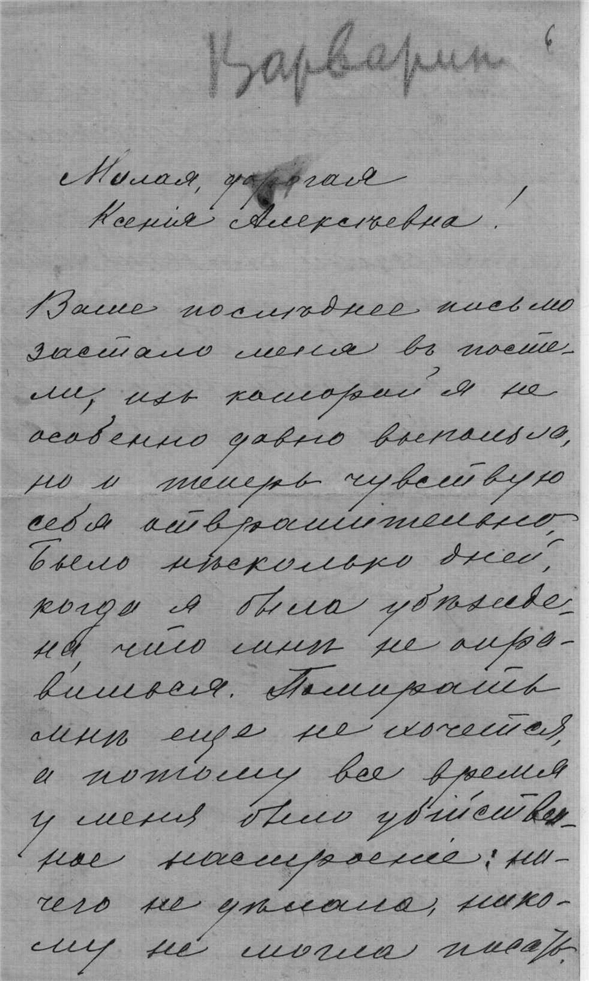 6
Варварин
Милая, дорогая
Ксенія Алексѣевна!
Ваше послѣднее письмо
застало меня въ посте-
ли, изъ которой я не
особенно давно выползла,
но и теперь чувствую
себя отвратительно.
Было нѣсколько дней,
когда я была убѣжде-
на, что мнѣ не опра-
виться. Помирать
мнѣ еще не хочется,
а потому все время
у меня было убійствен-
ное настроеніе: ни-
чего не дѣлала, нико-
му не могла писать.